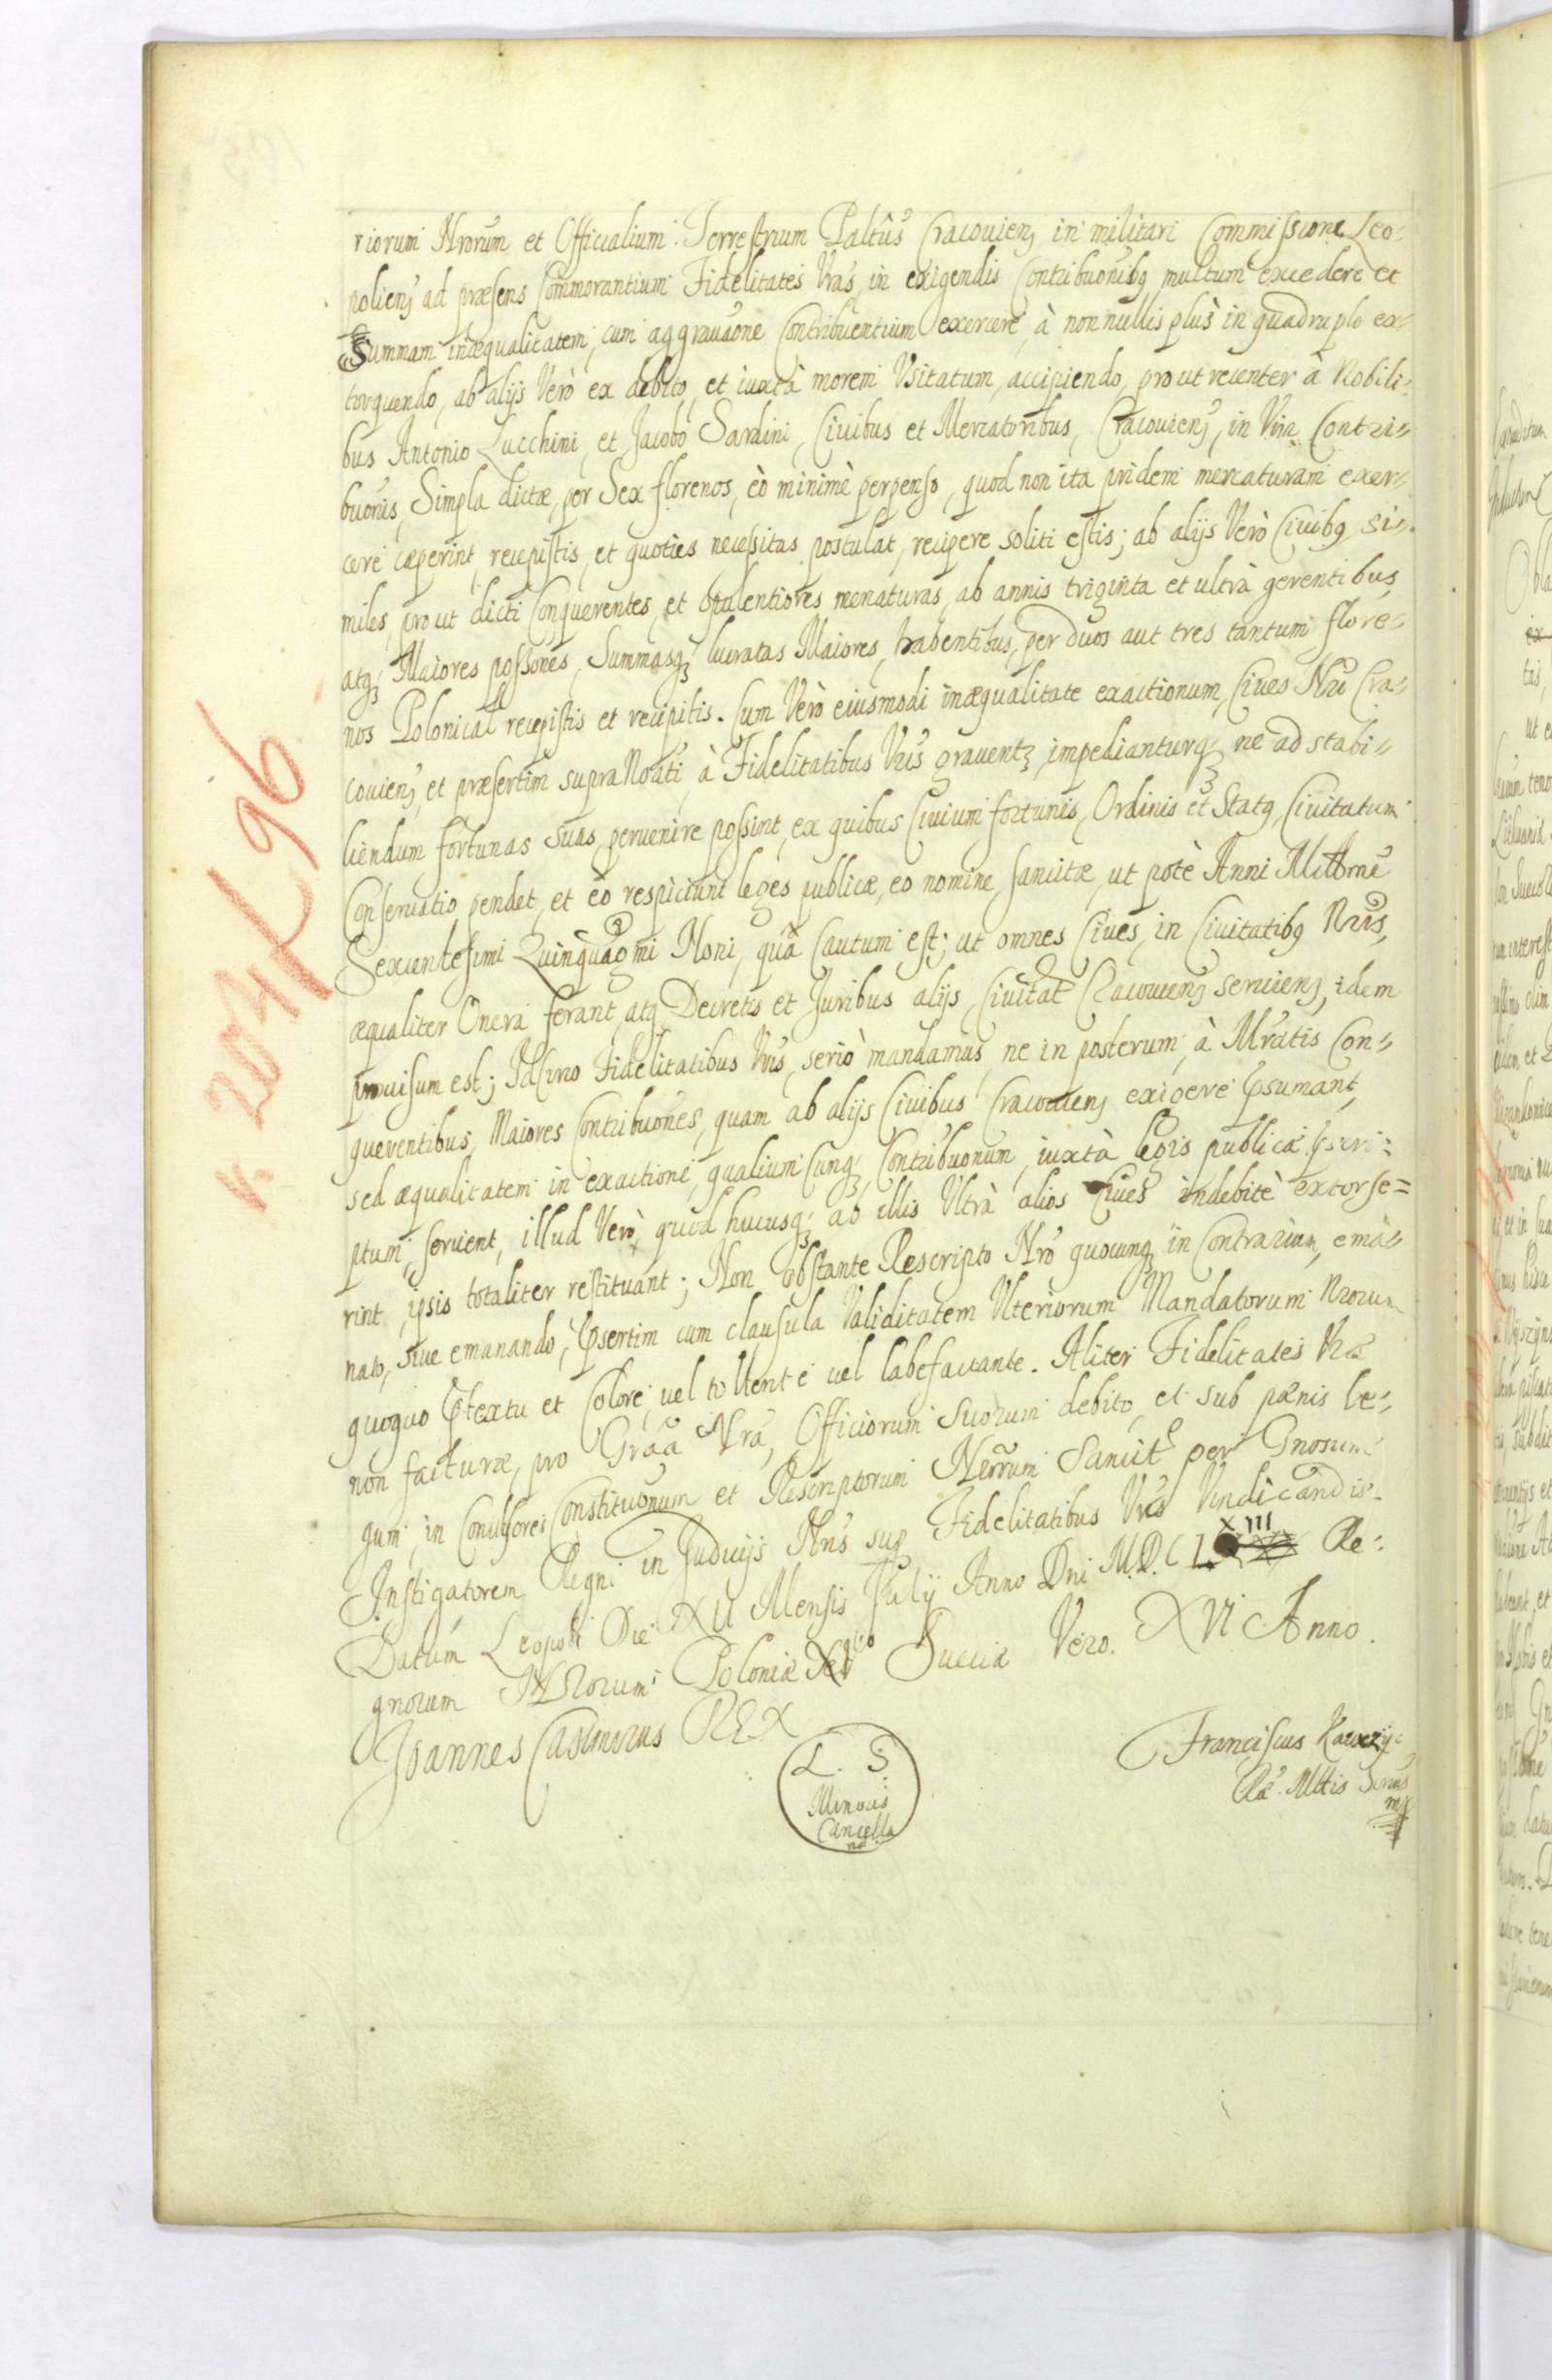 riorum Nrorum et Officialium Terrestrium Paltûs Cracovien, in militari Commissione Leo-
polien, ad præsens Commorantium Fidelitates Vras, in exigendis Contribuonibq multum excedere et
Summam inæqualitatem, cum aggravaone Contribuentium exercere, à nonnullis plus in quadruplo ex-
torquendo, ab alijs Verò ex debito, et iuxtà morem Usitatum, accipiendo, prout recenter à Nobili-
bus Antonio Lucchini, et Jacobo Sardini, Civibus et Mercatoribus, Cracovien, in Vim Contri-
buonis, Simpla dictæ, per Sex florenos, eò minimè perpenso, quod non ita pridem mercaturam exer-
cere cæperint, recepistis, et quoties necessitas postulat, recipere soliti estis; ab alijs Verò Civibq si-
miles, prout dicti Conquerentes, et opulentiores mercaturas, ab annis triginta et ultrà gerentibus,
atq Maiores possones, Summasq lucratas Maiores, habentibus, per duos aut tres tantum flore-
nos Polonicał recepistis et recipitis. Cum Verò eiusmodi inæqualitate exactionum, Cives Nri Cra-
covien, et præsertim supra Noati, à Fidelitatibus Vris gravent, impedianturq ne ad stabi-
liendum fortunas suas, pervenire possint, ex quibus Civium fortunis, Ordinis et Statq Civitatum
Conservatio pendet, et eò respiciunt leges publicæ, eo nomine, sancitæ, ut potè Anni Millmi
Sexcentesimi Quinquagmi Noni, quâ Cautum est; ut omnes Cives, in Civitatibq Nris,
æqualiter Onera ferant, atq Decretis et Juribus alijs Civitat Cracovien, servien, idem
provisum est; Idcirco Fidelitatibus Vris, seriò mandamus, ne in posterum, à Mratis Con-
querentibus, Maiores Contribuones, quam ab alijs Civibus Cracovien, exigere psumant,
sed æqualitatem in exactione, qualiumcunq Contribuonum, iuxtà legis publicæ pscri-
ptum, servent, illud Verò, quod hucusq ab illis Ultrà alios Cives indebitè extorse-
rint, ipsis totaliter restituant; Non obstante Rescripto Nro quocunq in Contrarium, ema-
nato, sive emanando, psertim cum clausula Validitatem Ulteriorum Mandatorum Nrorum
quoquo ptextu et Colore, vel tollente vel labefactante. Aliter Fidelitates Vræ
non facturæ, pro Graa Nra, Officiorum Suorum debito, et sub pænis le-
gum, in Convulsores Constituonum et Rescriptorum Nrorum Sancit per Gnosum
Instigatorem Regni in Judicijs Nris sup Fidelitatibus Vris Vindicandis.
Datum Leopoli Die XII Mensis July Anno Dni M.D.C.L.XIII Re-
gnorum Nrorum Poloniæ Sueciæ Vero. XVI Anno.
Joannes Casimirus REX
L. S.
Minoris
Cancella
riæ
Franciscus
Ræ. Mttis Srius
mp
k. 204 K 96